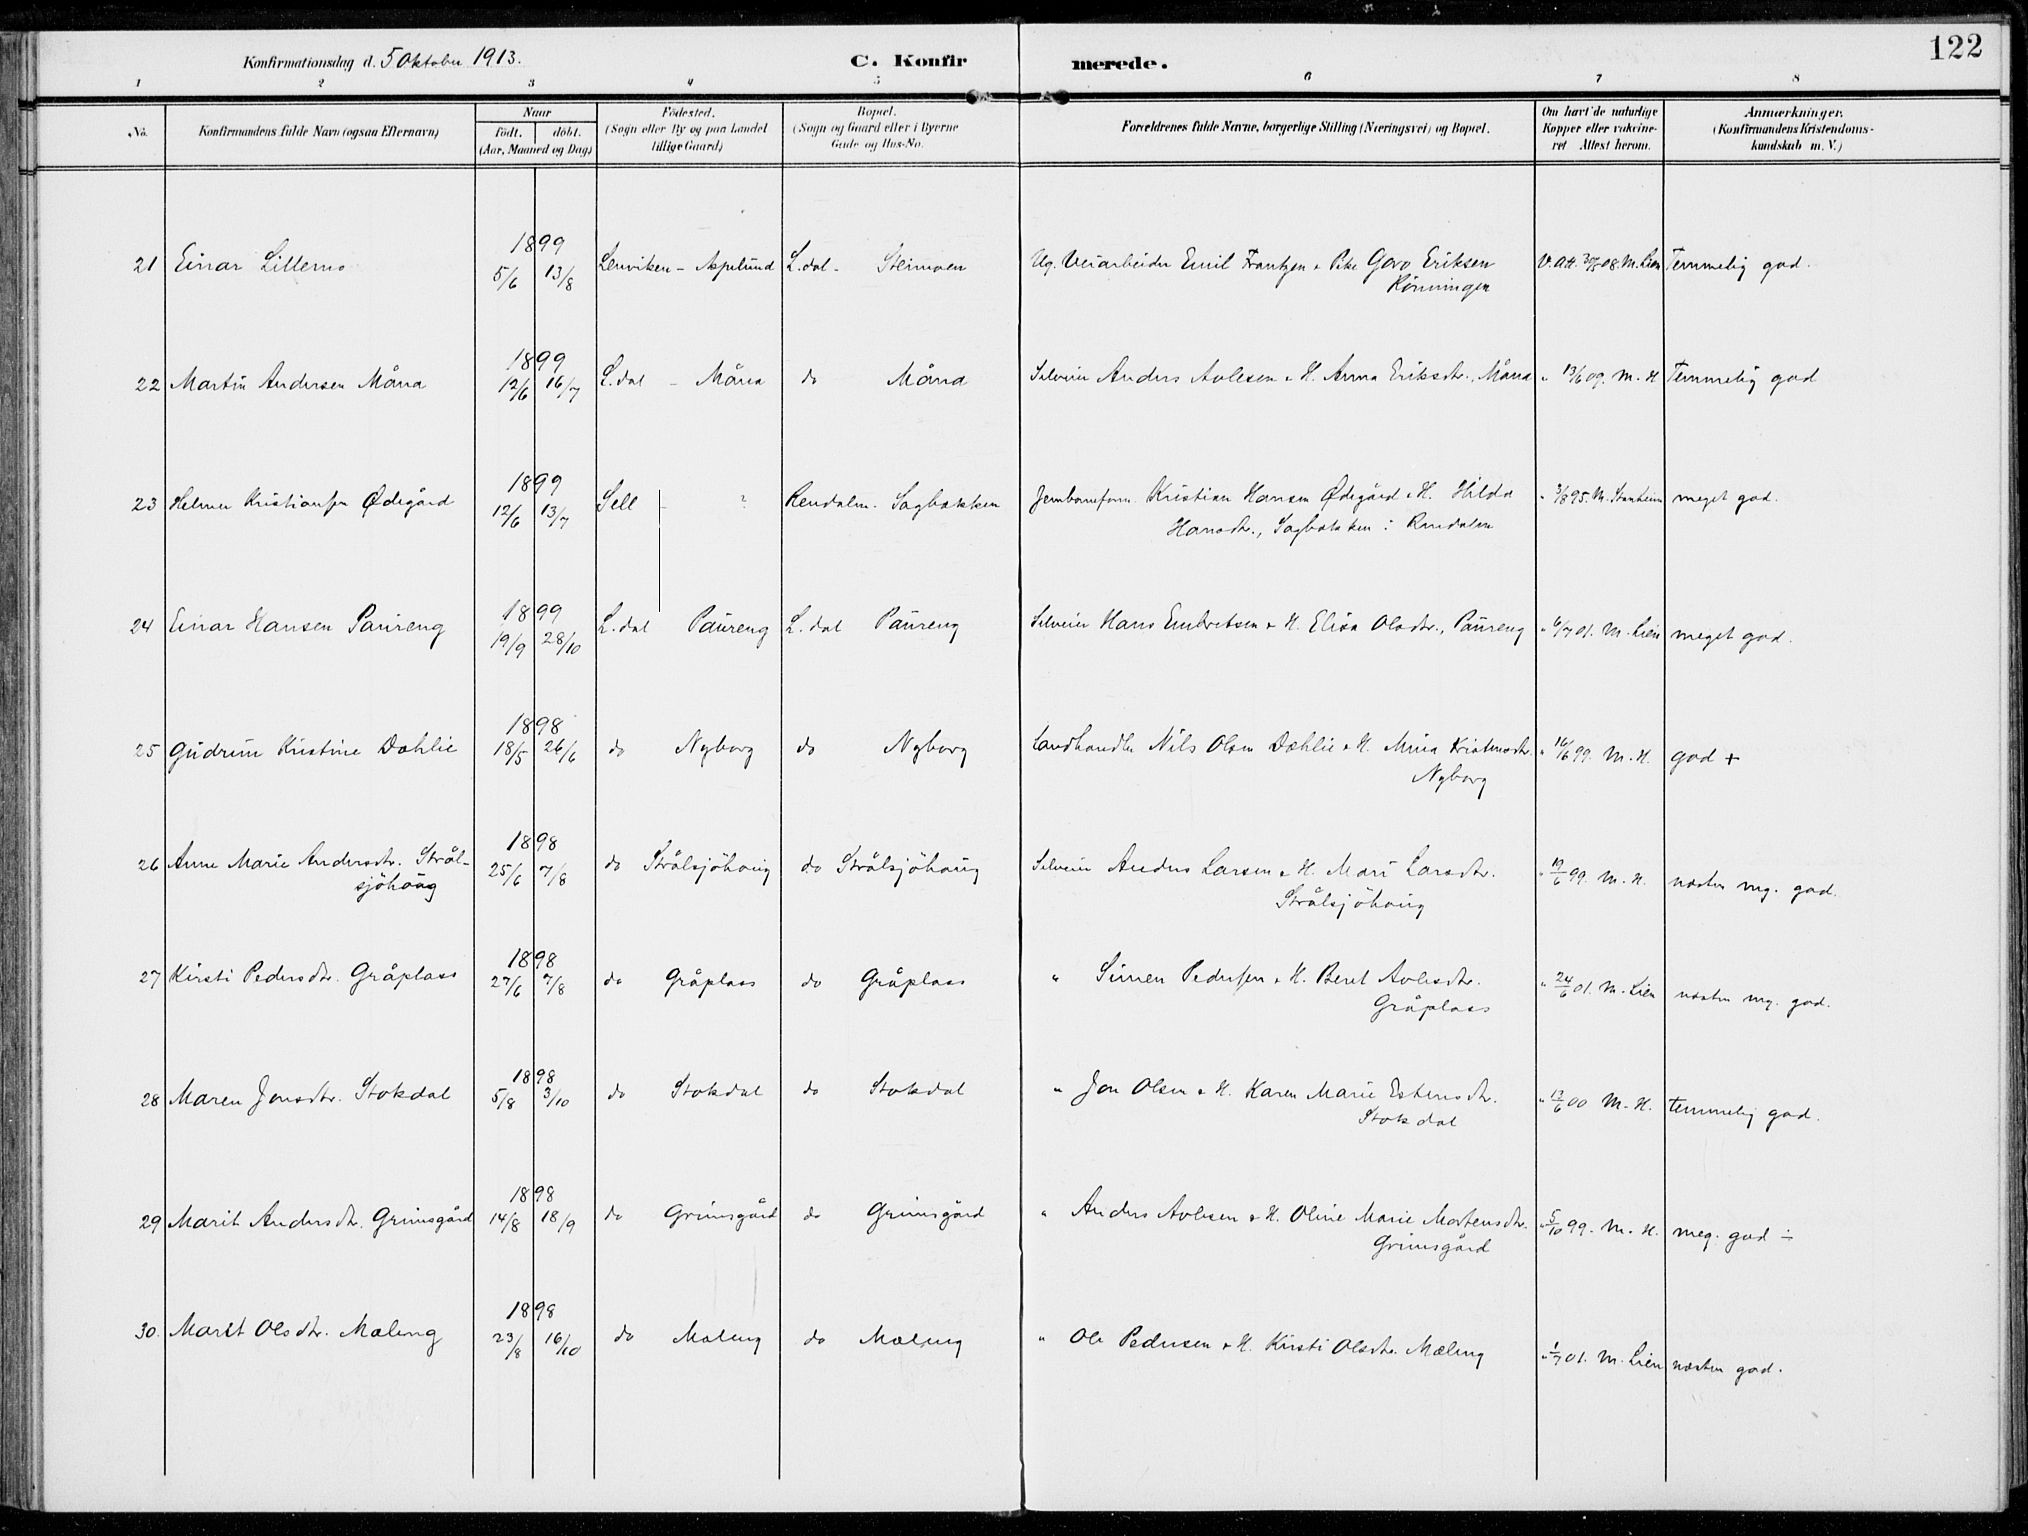 122
Konfirmationsdag d. 5 Oktober 1913. C. Konfirmerede.
1 2 3 4 5 6 7 8
No. Konfirmandens fulde Navn (ogsaa Efternavn) Naar födt. döbt. (Aar, Maaned og Dag) Födested. (Sogn eller By og paa Landet tillige Gaard) Bopæl. (Sogn og Gaard eller i Byerne Gade og Hus-No. Forældrenes fulde Navne, borgerlige Stilling (Næringsvei) og Bopæl. Om havt de naturlige Kopper eller vakcineret Attest herom. Anmærkninger. (Konfirmandens Kristendomskundskab m. V.)
1899
21 Einar Lillemo 5/6 13/8 Lenviken - Aspelund L.dal - Steimoen Ug. Veiarbeider Emil Frantzen & Pike Goro Eriksen V. Att. 08. M. Lien Temmelig god.
Rönningen
1899
22 Martin Andersen Måna 12/6 16/7 L.dal - Måna do Måna Selveier Anders Avlesen & H. Anna Eriksdtr., Måna " 13/6 09. M. H Temmelig god
1899
23 Helmer Kristiansen Ødegård 12/6 13/7 Sell - ? Rendalen. Sagbakken Jernbaneform. Kristian Hansen Ødegård & H. Hilda " 3/8 95. M. meget god.
Hansdtr., Sagbakken i Rendalen
1899
24 Einar Hansen Paureng 19/9 28/10 L.dal Paureng L.dal Paureng Selveier Hans Embretsen & H. Elisa Olsdtr., Paureng " 6/7 01. M. Lien meget god.
1898
25 Gudrun Kristine Dæhlie 18/5 26/6 do Nyborg do Nyborg Landhandler Nils Olsen Dæhlie & H. Mina Kristensdtr. " 16/6 99. M. H. god +
Nyborg
1898
26 Anne Marie Andersdtr. Strål- 25/6 7/8 do Strålsjöhaug do Strålsjöhaug Selveier Anders Larsen & H. Mari Larsdtr. " 19/6 99. M. H. næsten mg. god.
sjöhaug Strålsjöhaug
1898
27 Kirsti Pedersdtr. Gråplass 27/6 7/8 do Gråplass do Gråplass " Simen Pedersen & H. Beret Avlesdtr. " 24/6 01. M. Lien næsten mg. god.
Gråplass
1898
28 Maren Jonsdtr. Stokdal 5/8 3/10 do Stokdal do Stokdal " Jon Olsen & H. Karen Marie Estensdtr. " 12/6 00 M. H. Temmelig god.
Stokdal
1898
29 Marit Andersdtr. Grimsgård 14/8 18/9 do Grimsgård do Grimsgård " Anders Avlesen & H. Oline Marie Mortensdtr. " 5/10 99. M. H. meg. god ÷
Grimsgård
1898
30. Marit Olsdtr. Mæleng 23/8 16/10 do Mæleng do Mæleng " Ole Pedersen & H. Kirsti Olsdtr. Mæleng " 1/7 01. M. Lien næsten god.